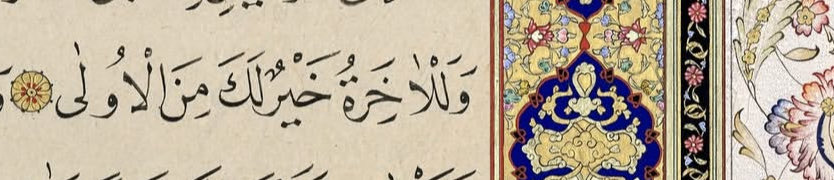 وَلَلْاٰخِرَةُ خَيْرٌ لَكَ مِنَ الْاُو۫لٰى